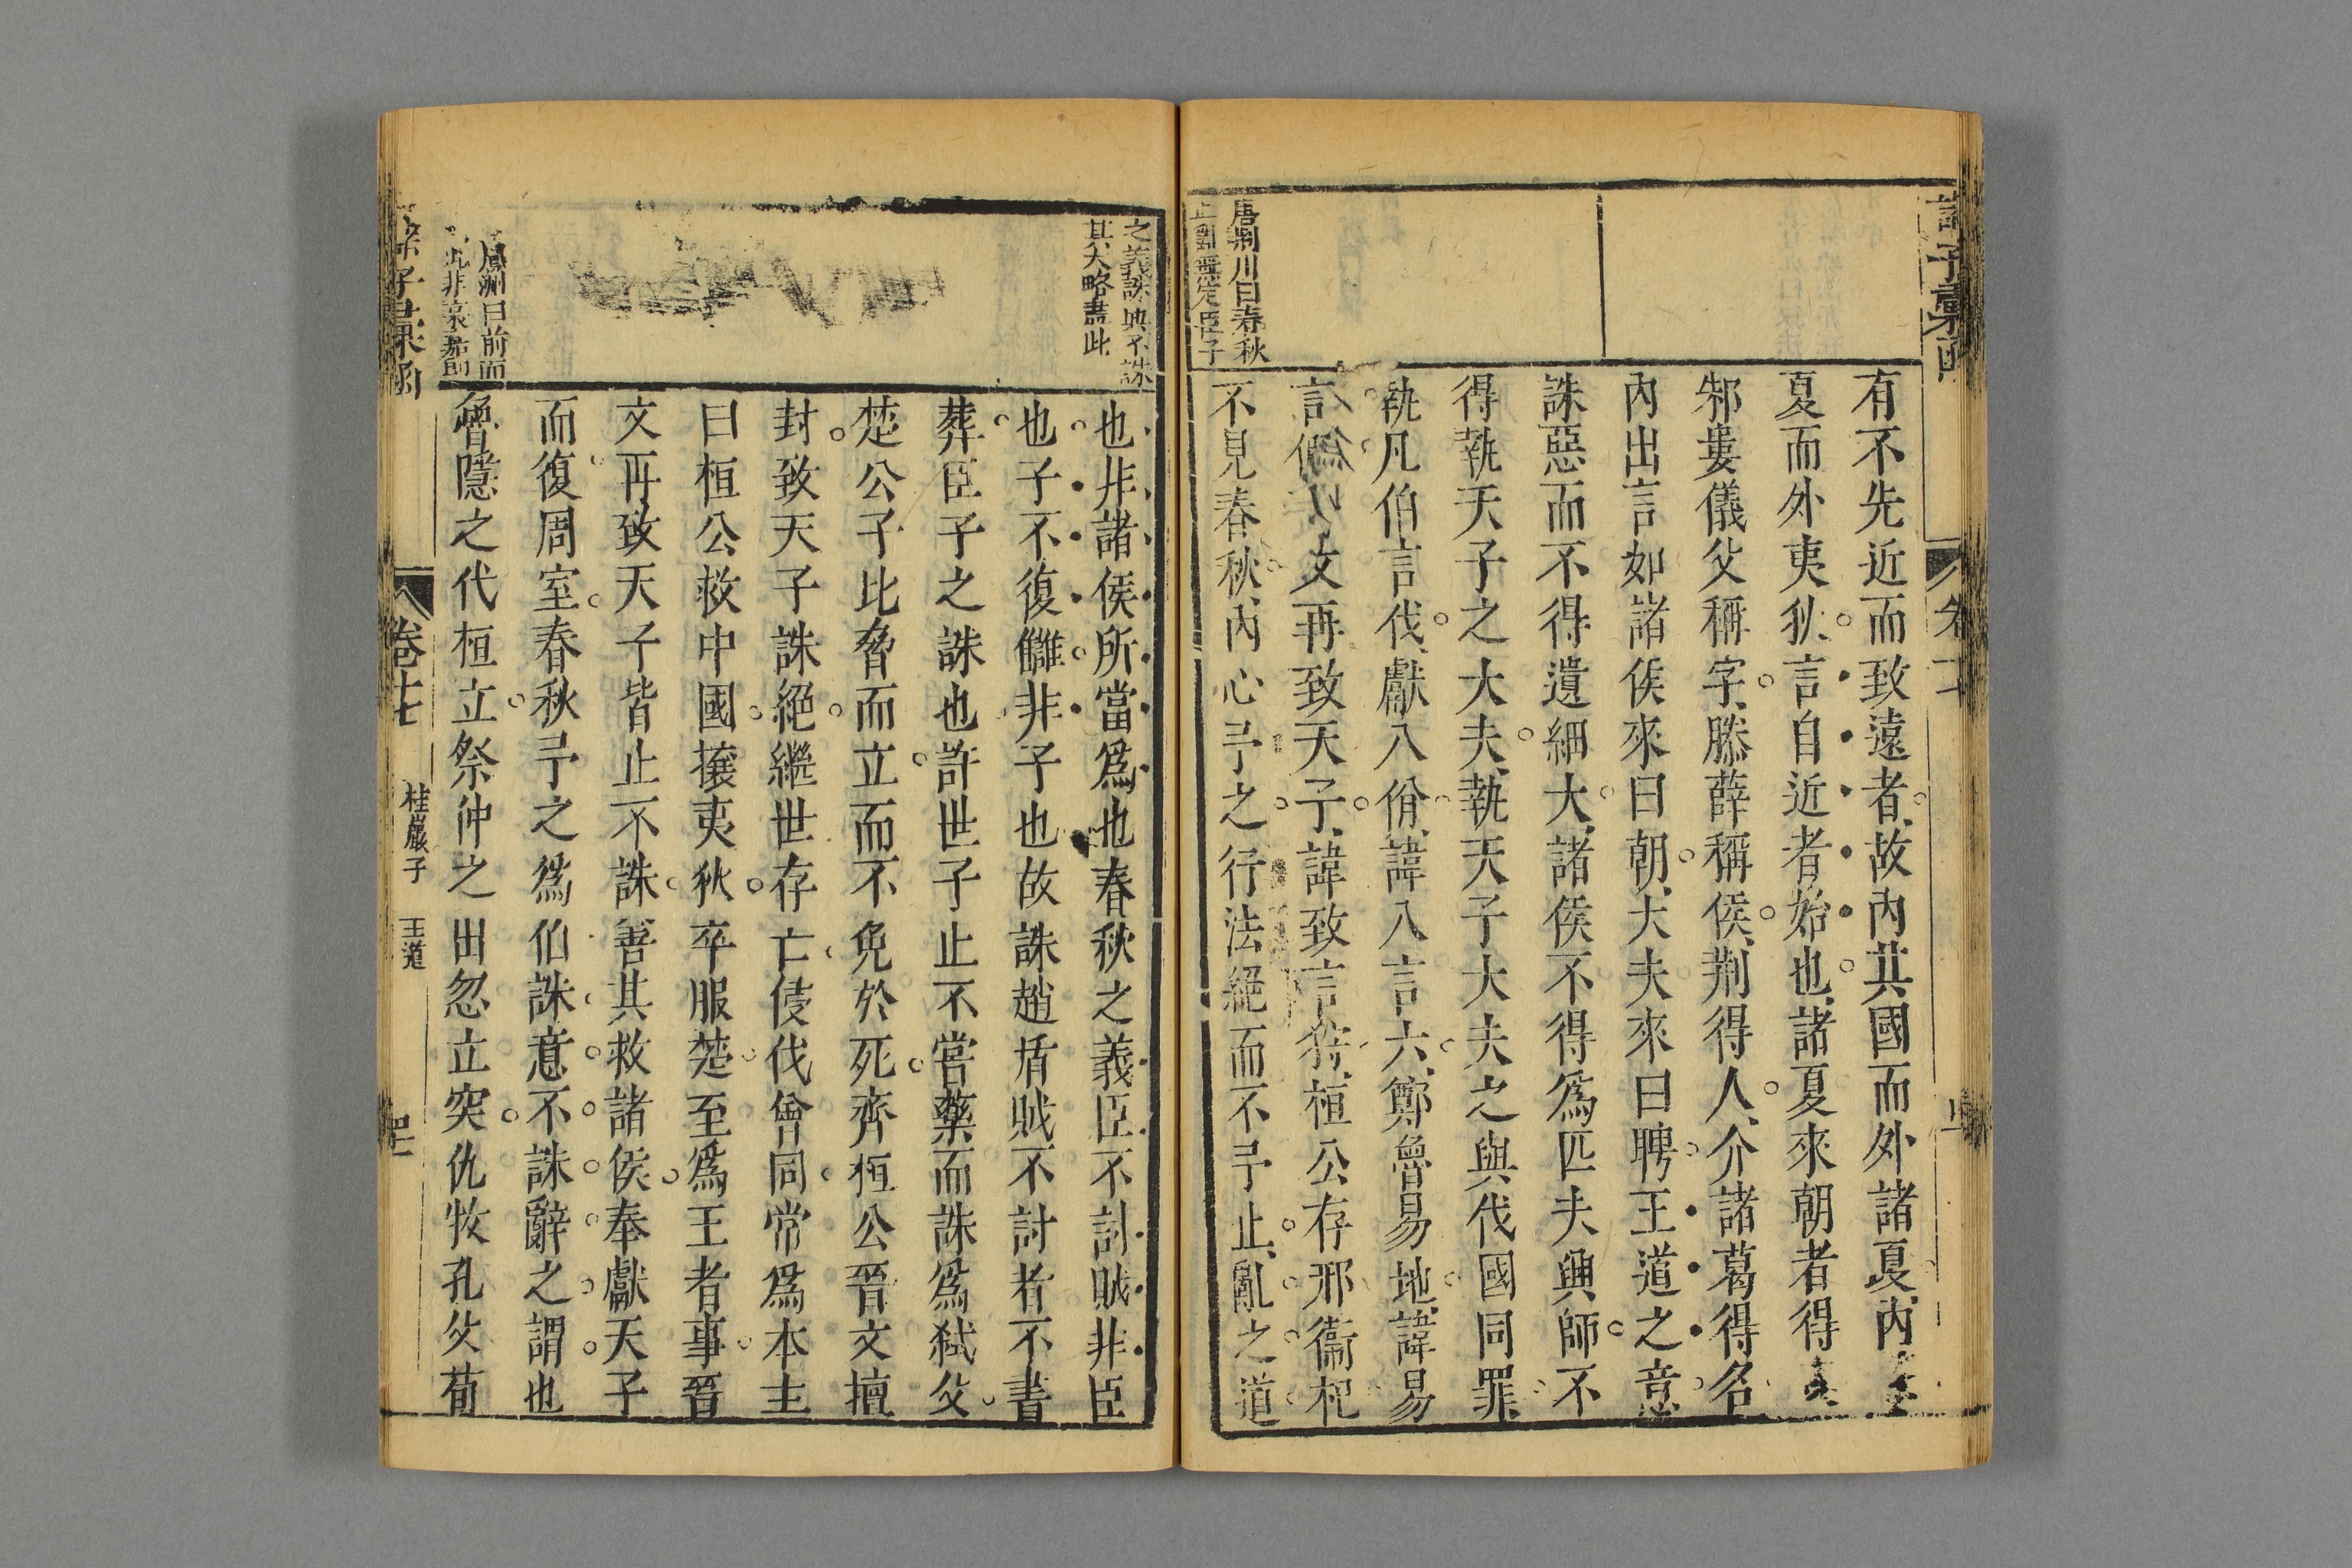 諸子彙函
有不先近而致遠者故內其國而外諸夏內
夏而外夷狄言自近者始也諸夏來朝者得
邾婁儀父稱字滕薛稱侯荆得人介諸葛得名
內出言如諸侯來曰朝大夫來曰聘王道之意
誅惡而不得遺細大諸侯不得爲匹夫興師不
得執天子之大夫執天子大夫之與伐國同罪
執凡伯言伐獻八佾諱八言六鄭魯易地諱易
言文再致天子諱致言狩桓公存邢衞杞
不見春秋內心予之行法絕而不予止亂之道
唐荆川曰春秋
臣子
之義誅與不誅
其大略盡此
也非諸侯所當爲也春秋之義臣不討賊非臣
也子不復讎非子也故誅趙盾賊不討者不書
葬臣子之誅也許世子止不嘗藥而誅爲弑父
楚公子比脅而立而不免於死齊桓公晉文擅
封致天子誅絕繼世存亡侵伐會同常爲本主
曰桓公救中國攘夷狄卒服楚至爲王者事晉
文再致天子皆止不誅善其救諸侯奉獻天子
而復周室春秋予之爲伯誅意不誅辭之謂也
魯隱之代桓立祭仲之出忽立突仇牧孔父荀
鳳洲曰前而
卷七
桂巖子
王道